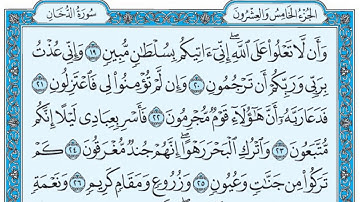 الجزء الخامس والعشرون
سورة الدخان
وَأَن لَّا تَعْلُوا۟ عَلَى ٱللَّهِ إِنِّىٓ ءَاتِيكُم بِسُلْطَـٰنٍ مُّبِينٍ ١٩ وَإِنِّى عُذْتُ
بِرَبِّى وَرَبِّكُمْ أَن تَرْجُمُونِ ٢٠ وَإِن لَّمْ تُؤْمِنُوا۟ لِى فَٱعْتَزِلُونِ ٢١
فَدَعَا رَبَّهُۥٓ أَنَّ هَـٰٓؤُلَآءِ قَوْمٌ مُّجْرِمُونَ ٢٢ فَأَسْرِ بِعِبَادِى لَيْلًا إِنَّكُم
مُّتَّبَعُونَ ٢٣ وَٱتْرُكِ ٱلْبَحْرَ رَهْوًا إِنَّهُمْ جُندٌ مُّغْرَقُونَ ٢٤ كَمْ
تَرَكُوا۟ مِن جَنَّـٰتٍ وَعُيُونٍ ٢٥ وَزُرُوعٍ وَمَقَامٍ كَرِيمٍ ٢٦ وَنَعْمَةٍ